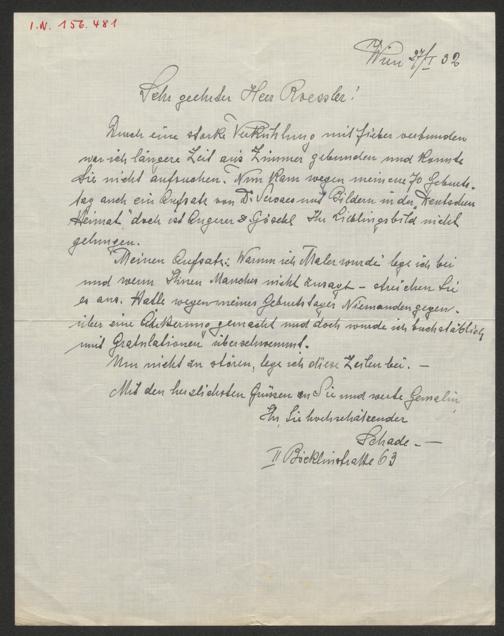 I.N. 156.481
Wien 27/I 32
Sehr geehrter Herr Roessler!
Durch eine starke Verkühlung mit Fieber verbunden
war ich längere Zeit ans Zimmer gebunden und konnte
Sie nicht aufsuchen. Nun kam wegen meines 70 Geburts-
tag auch ein Aufsatz von Dr Servaes mit Bildern in der "Deutschen
Heimat" doch ist Angerer & Göschl Ihr Lieblingsbild nicht
gelungen.
Meinen Aufsatz: Warum ich Maler wurde lege ich bei
und wenn Ihnen Manches nicht zusagt – streichen Sie
es aus. Hatte wegen meines Geburtstages Niemanden gegen-
über eine Äußerung gemacht und doch wurde ich buchstäblich
mit Gratulationen überschwemmt.
Um nicht zu stören, lege ich diese Zeilen bei. –
Mit den herzlichsten Grüssen an Sie und werte Gemalin
Ihr, Sie hochschätzender
Schade. –
II Böcklinstraße 63